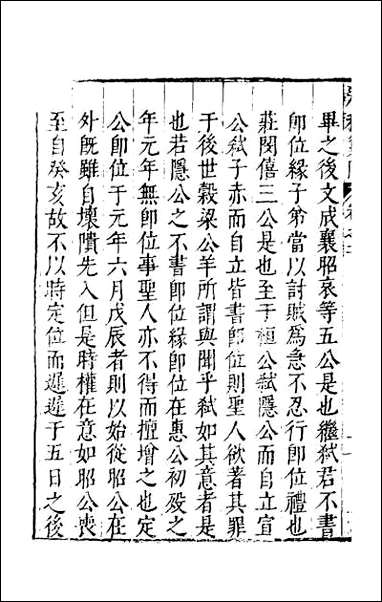 畢之後文成襄昭哀等五公是也繼弑君不書
即位緣子弟當以討賊爲急不忍行即位禮也
莊閔僖三公是也至于桓公弑隱公而自立宣
公弑子赤而自立皆書即位則聖人欲著其罪
于後世穀梁公羊所謂與聞乎弑如其意者是
也若隱公之不書即位緣即位在惠公初殁之
年元年無即位事聖人亦不得而擅增之也定
公即位于元年六月戊辰者則以始從昭公在
外既雖自壞隤先入但是時權在意如昭公喪
至自癸亥故不以時定位而遲遲于五日之後